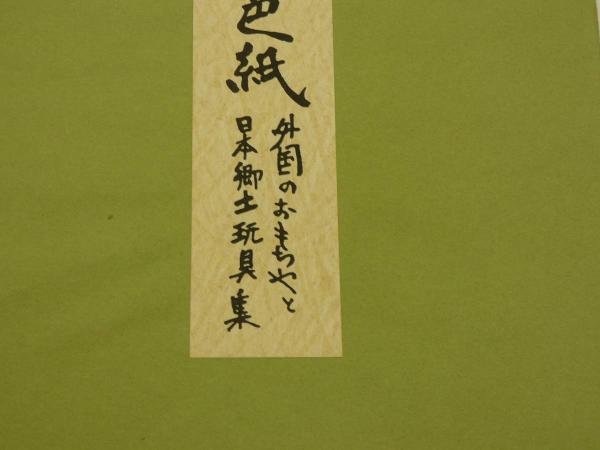 色紙
外国のおもちやと
日本郷土玩具集